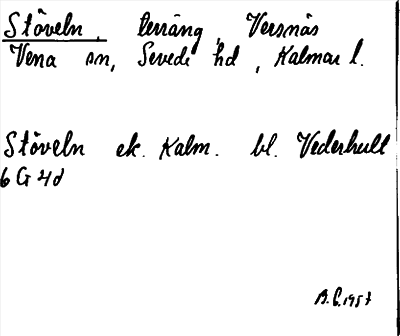 Stöveln, terräng, Versnäs
Vena sn, Sevede hd, Kalmar l.
Stöveln ek. Kalm. bl. Vederhult
6 G 4d
B.E. 1957